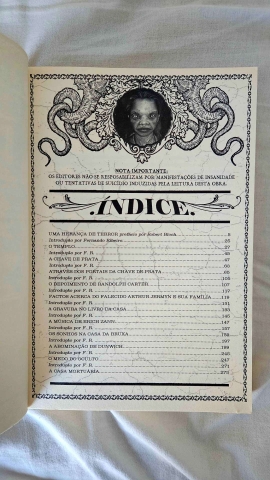 NOTA IMPORTANTE:
OS EDITORES NÃO SE RESPOSABILIZAM POR MANIFESTAÇÕES DE INSANIDADE
OU TENTATIVAS DE SUICÍDIO INDUZIDAS PELA LEITURA DESTA OBRA.
.ÍNDICE.
UMA HERANÇA DE TERROR prefácio por Robert Bloch 9
Introdução por Fernando Ribeiro 25
O TEMPLO 27
Introdução por F. R. 45
A CHAVE DE PRATA
Introdução por F. R.
ATRAVÉS DOS PORTAIS DA CHAVE DE PRATA
Introdução por F. R. 105
O DEPOIMENTO DE RANDOLPH CARTER 107
Introdução por F. R.
FACTOS ACERCA DO FALECIDO ARTHUR JERMYN E SUA FAMÍLIA
Introdução por F. R. 131
A GRAVURA NO LIVRO DA CASA
Introdução por F. R. 145
A MÚSICA DE ERICH ZANN 147
Introdução por F. R.
OS SONHOS NA CASA DA BRUXA
Introdução por F. R. 197
A ABOMINAÇÃO DE DUNWICH 199
Introdução por F. R. 245
O MEDO DO OCULTO 247
Introdução por F. R. 271
A CASA MORTUÁRIA 273